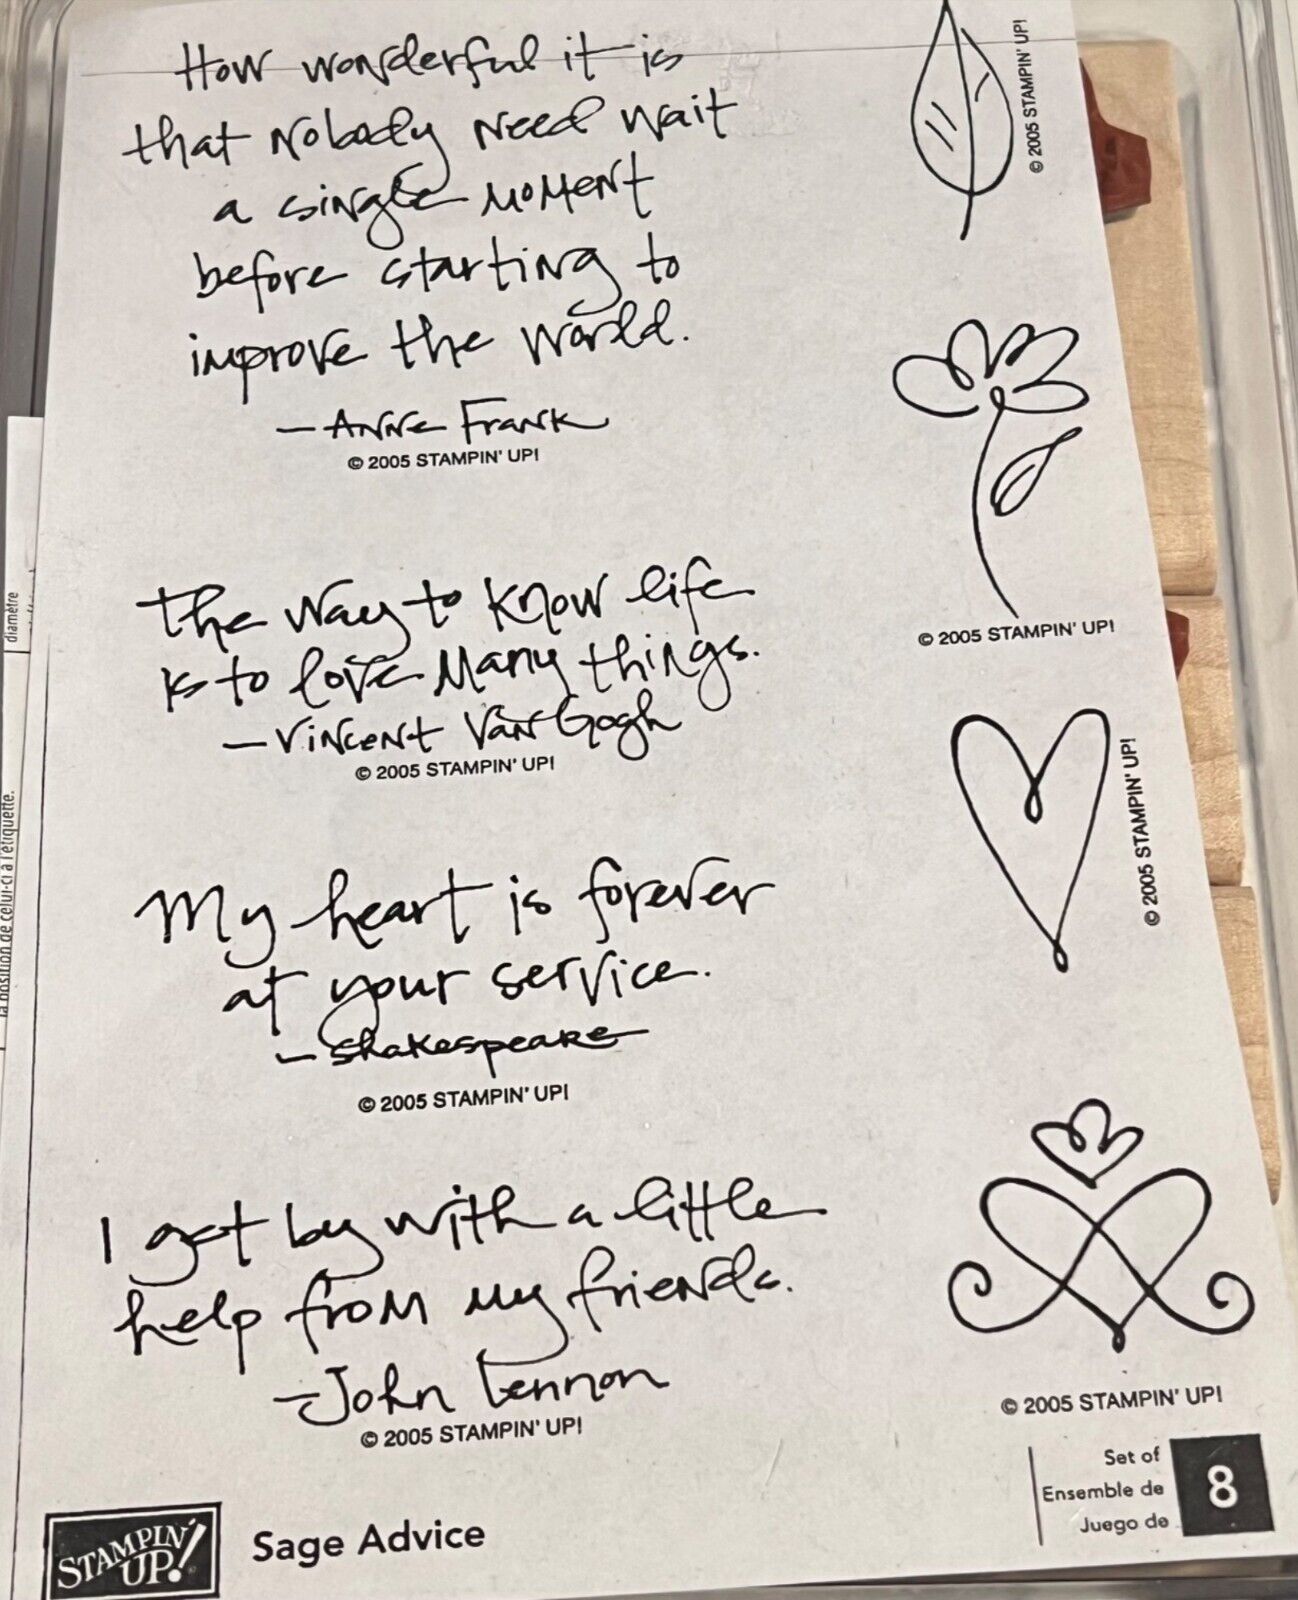 How wonderful it is
that nobody need wait
a single moment
before starting to
improve the world.
—Anne Frank
© 2005 STAMPIN' UP!
© 2005 STAMPIN' UP!
The way to know life
is to love many things.
—Vincent Van Gogh
© 2005 STAMPIN' UP!
© 2005 STAMPIN' UP!
My heart is forever
at your service.
—Shakespeare
© 2005 STAMPIN' UP!
© 2005 STAMPIN' UP!
I get by with a little
help from my friends.
—John Lennon
© 2005 STAMPIN' UP!
© 2005 STAMPIN' UP!
Set of
Ensemble de
Juego de
8
STAMPIN' UP!
Sage Advice
diamètre
la position de celui-ci à l'étiquette.